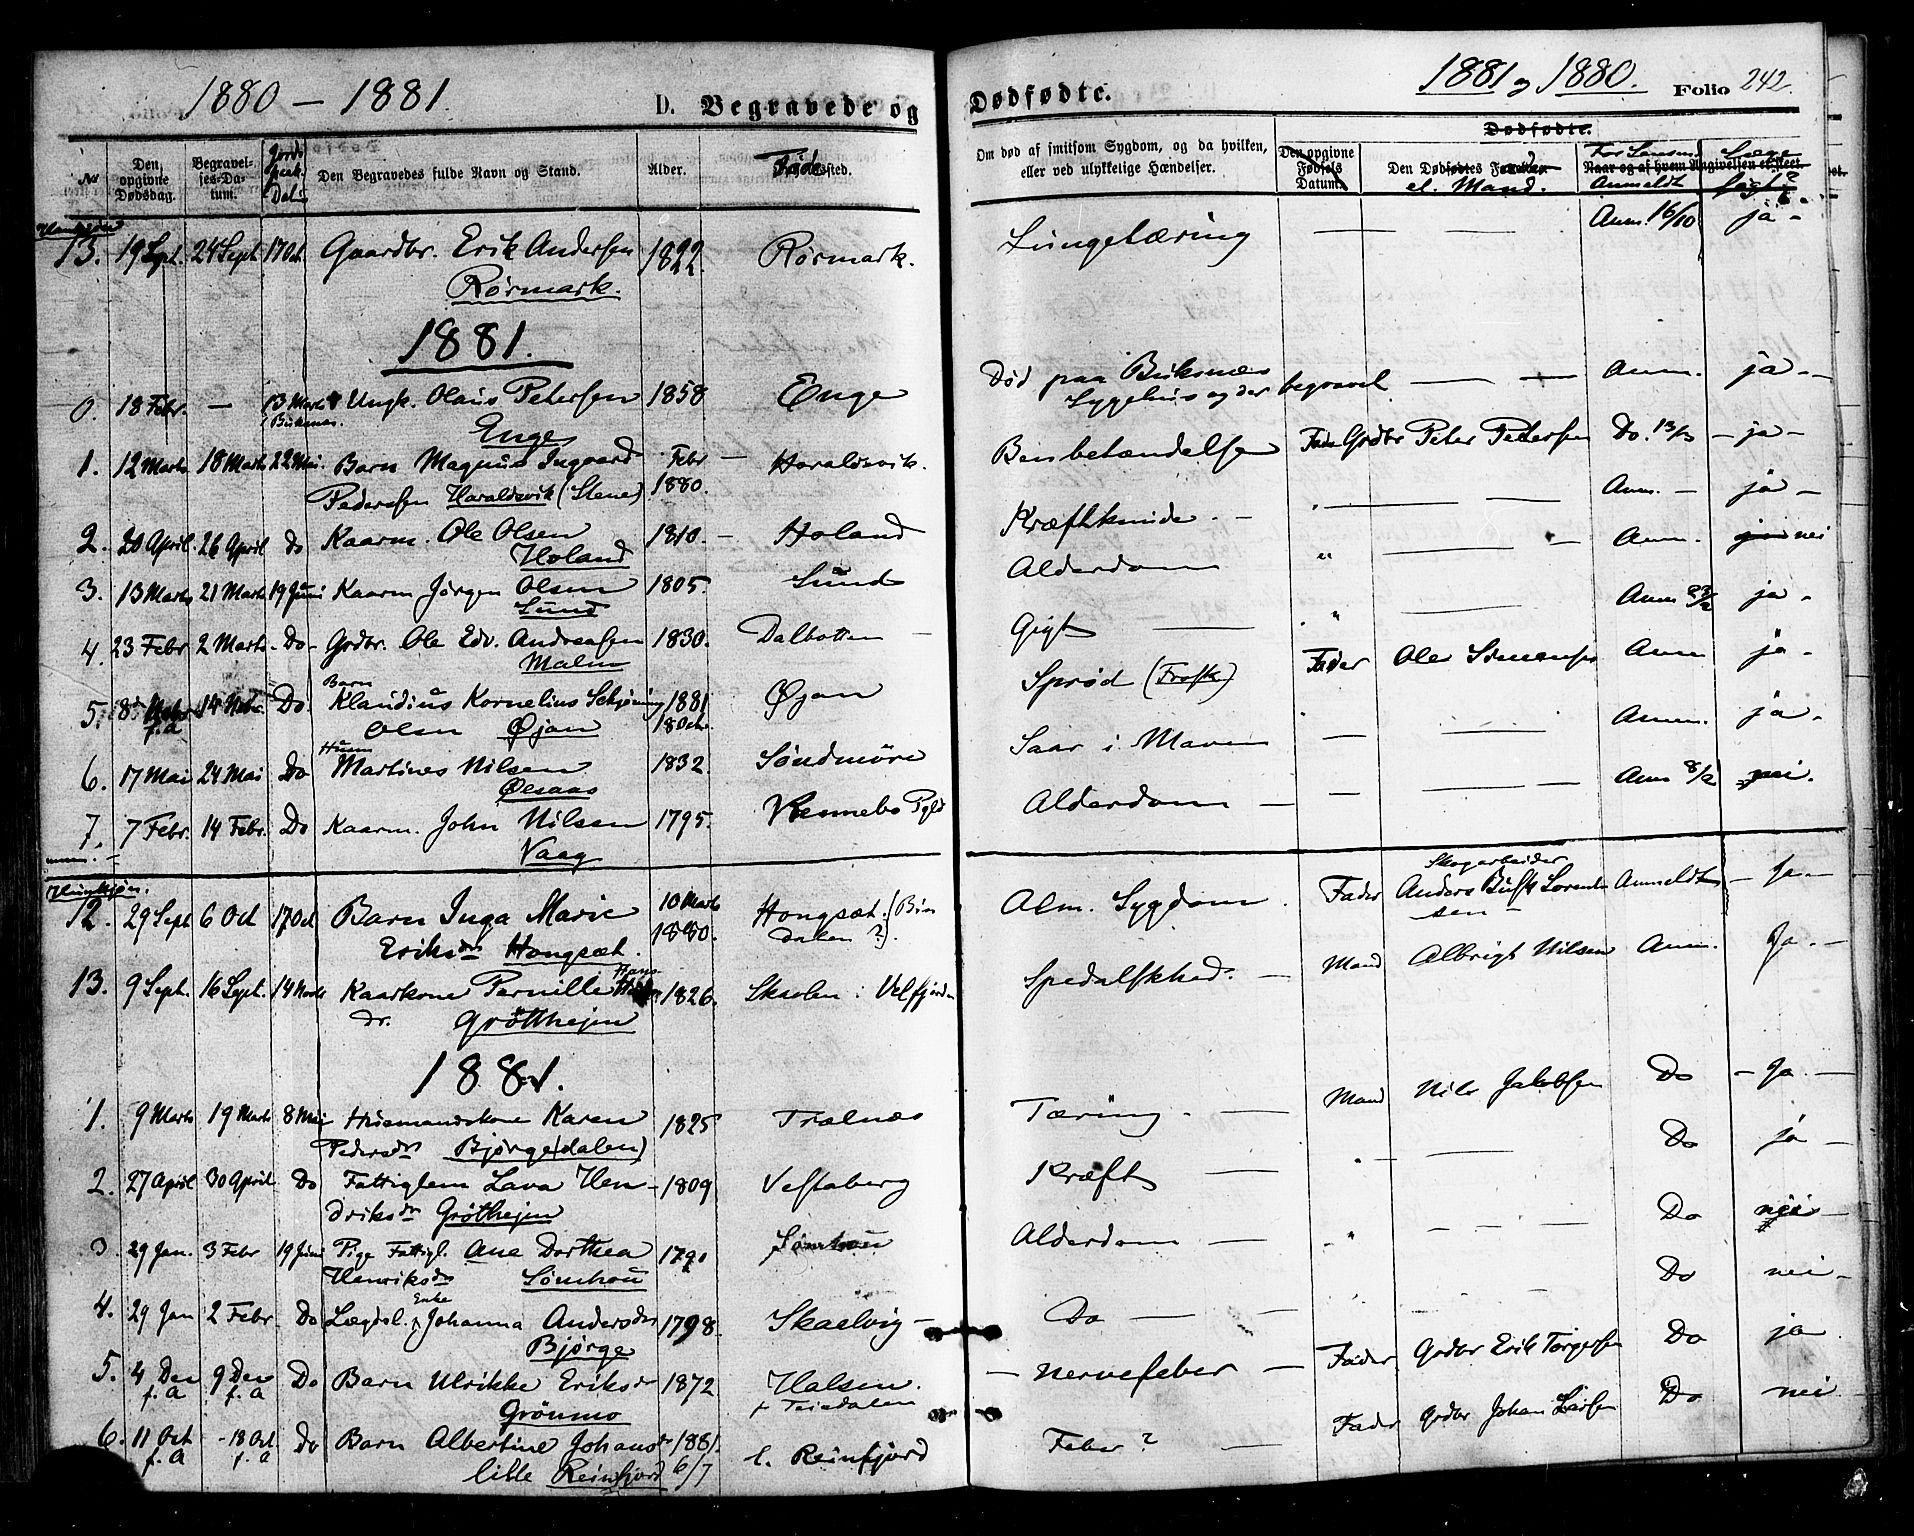 1880 – 1881.
D. Begravede og
No
Den opgivne Dødsdag.
Begravelses-Datum.
Jords
Dat
Den Begravedes fulde Navn og Stand.
Alder.
Fødested.
13. 19 Sept. 24 Sept 17 Oct. Gaardbr. Erik Andersen 1822. Rørmark.
Rørmark.
1881.
0. 18 Febr. – 13 Marts Ungk. Olaus Petersen 1858 Enge
Enge
1. 12 Marts 18 Marts 22 Mai Barn Magnus Ingvard Febr – Haraldsvik.
Pedersen Haraldsvik (Stene) 1880.
2. 20 April 26 April Do Kaarm. Ole Olsen 1810. – Holand
Holand
3. 13 Marts 21 Marts 19 Juni Kaarm Jørgen Olsen 1805. Sund
Sund
4. 23 Febr 2 Marts Do Grdbr. Ole Edv. Andreasen 1830. Dalbotten –
Malm
Barn
5. 8 14 Do. Klaudius Kornelius Schjøning 1881 Øjan
f.A Olsen Øjan 18 Oct.
Husm
6. 17 Mai 24 Mai Do Martines Nilsen 1832. Søndmøre
Ølsaas
7. 7 Febr. 14 Febr. Do Kaarm. John Nilsen 1795. Vennebo
Vaag
12. 29 Sept 6 Oct 17 Oct Barn Inga Marie 10 Marts Hongsæt. (Bin
Eriksdr Hongsæt. 1880. dalen?).
13. 9 Sept. 16 Sept. 14 Marts Kaarkone Pernille Hans 1826. Skaolen i Velfjorden
dr. Grøtthejen
1881.
1. 9 Marts 19 Marts 8 Mai Husmandskone Karen 1825 Trælnæs
Pedersdr Bjørge(dalen)
2. 27 April 30 April Do Fattiglem Lava Hen – 1809 Vestaberg
driksdr Grøthejen
3. 29 Jan. 3 Febr 19 Juni Pige Fattigl. Ane Dorthea 1791 Sømhou
Henriksdr Sømhou
Enke
4. 29 Jan 2 Febr Do Lægdsl. Johanna Andersdr 1798. Skaelvig –
Bjørge
5. 4 Dec 9 Dec Do Barn Ulrikke Eriksdr 1872 Halsen.
f.A f.A Grønmo
6. 11 Oct – 18 Oct Do Barn Albertine Johansdr 1881. l. Reinfjord
f.A f.A lille Reinfjord 6/7
1881 og 1880.
Dødfødte.
Folio 242.
Dødfødte.
Om død af smitsom Sygdom, og da hvilken, eller ved ulykkelige Hændelser.
Den opgivne Fødsels Datum.
Den Dødfødtes Forældre
el. Mand.
Naar og af hvem Angivelsen er skeet.
Anmeldt
Læge
søgt?
Lungetæring — — Anm. 16/10 ja –
Død paa Buksnæs
Sygehus og der begravet — — Anm. ja –
Benbetændelse Fader Grdbr Peter Petersen Do. 13/3 – ja –
Kræftknude – — — Anm. – ja –
Alderdom " — – Anm. nei
Gigt — " — Anm 23/2 ja –
Sprød (Frosk) Fader Ole Simensen Anm ja –
Saar i Maven — — — Anm. ja –
Alderdom – — — – Anm 8/2 nei.
Skogarbeider
Alm. Sygdom. Fader Anders Busk Lorents Anmeldt – Ja –
sen
Spedalskhed. – Mand Albrigt Nilsen Anm. Ja. –
Tæring – — Mand Nils Jakobsen Do – Ja –
Kræft — " — Do ja –
Alderdom — " — Do nei –
Do — — — Do nei –
– Nervefeber – Fader Grdbr Erik Torgersen Do ja
Feber? — Fader Grdbr Johan Do nei